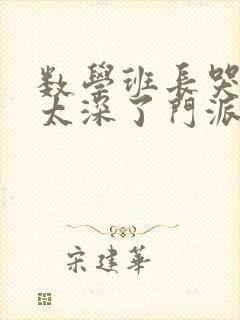 数學班長哭
太深了門派
宋建華